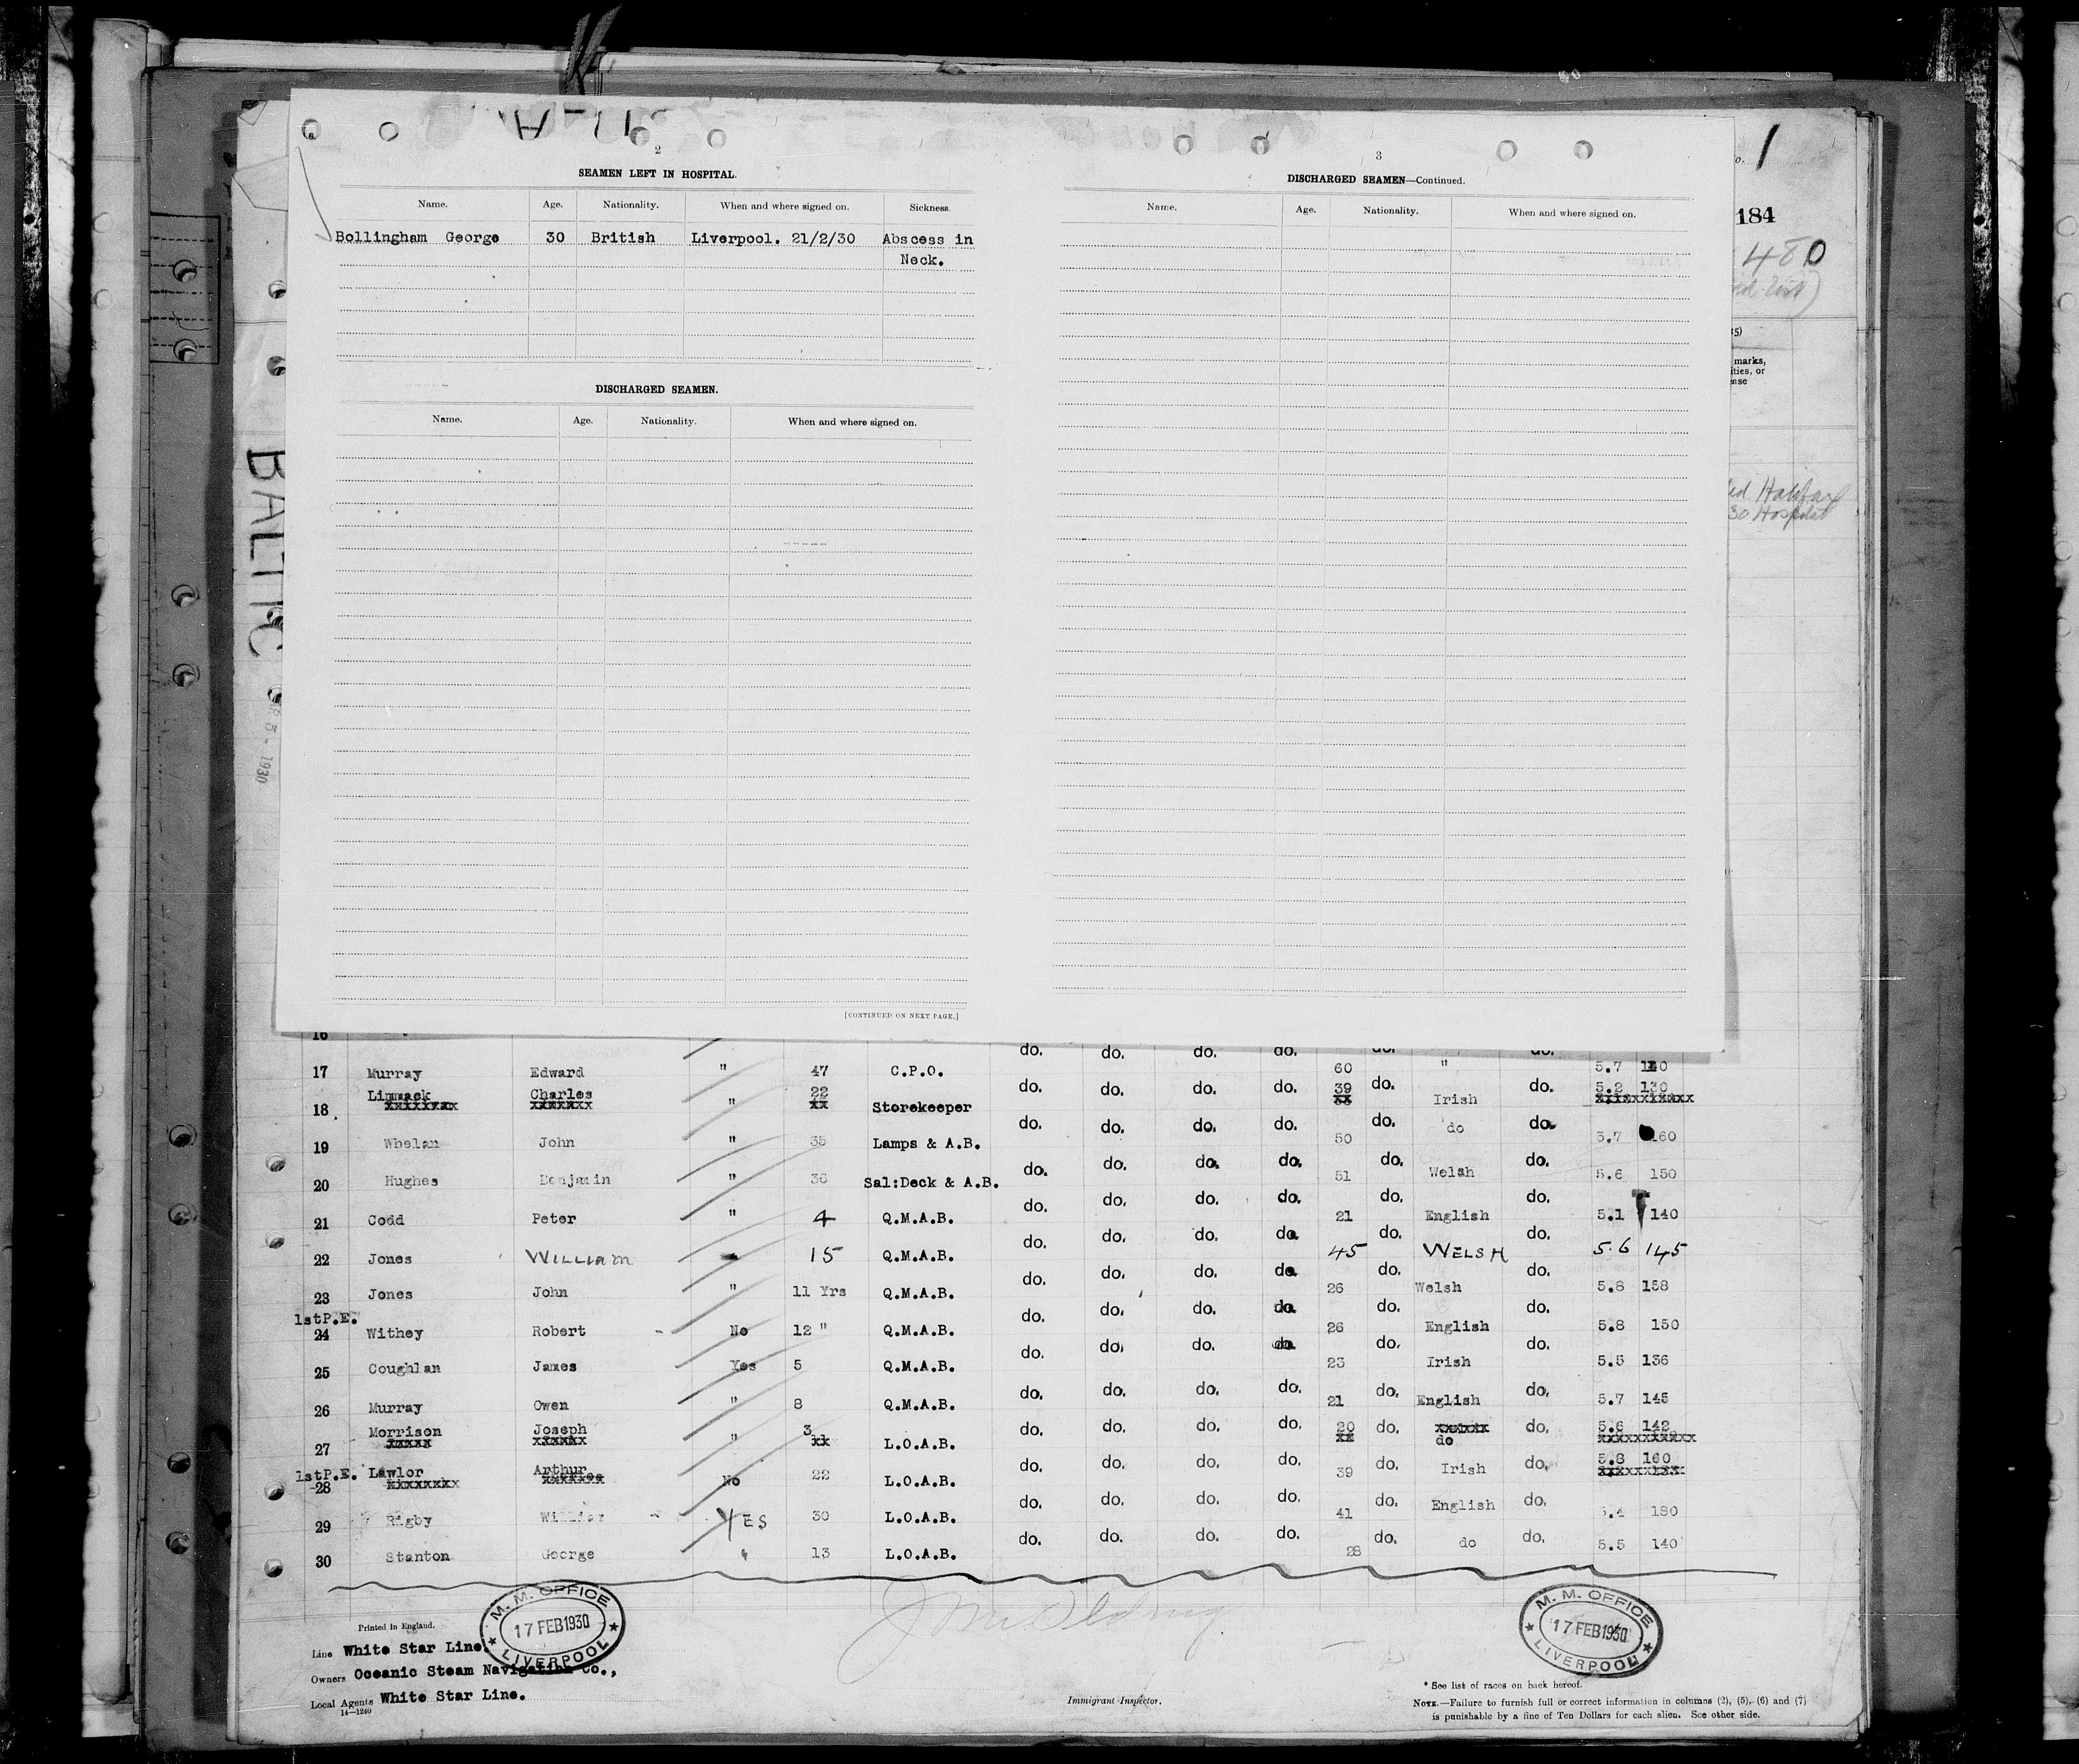 2
SEAMEN LEFT IN HOSPITAL.
Name. Age. Nationality. When and where signed on. Sickness.
Bollingham George 30 British Liverpool. 21/2/30 Abscess in
Neck.
DISCHARGED SEAMEN.
Name. Age. Nationality. When and where signed on.
[CONTINUED ON NEXT PAGE.]
3
DISCHARGED SEAMEN—Continued.
Name. Age. Nationality. When and where signed on.
1
184
480
marks,
ities, or
Halifax
30 Hospital
BALTIC
5 - 1930
16 do. do. do. do.
17 Murray Edward " 47 C.P.O. do. do. do. do. 60 do. " do. 5.7
18 Limmack Charles " 22 Storekeeper do. do. do. do. 39 do. Irish do. 5.2 130
19 Whelan John " 35 Lamps & A.B. do. do. do. do. 50 do. do do. 5.7 160
20 Hughes Benjamin " 36 Sal:Deck & A.B. do. do. do. do. 51 do. Welsh do. 5.6 150
21 Codd Peter " 4 Q.M.A.B. do. do. do. do. 21 do. English do. 5.1 140
22 Jones WILLIAM " 15 Q.M.A.B. do. do. do. do. 45 do. WELSH do. 5.6 145
23 Jones John " 11 Yrs Q.M.A.B. do. do. do. do. 26 do. Welsh do. 5.8 158
1stP.E.
24 Withey Robert No 12 " Q.M.A.B. do. do. do. do. 26 do. English do. 5.8 150
25 Coughlan James Yes 5 Q.M.A.B. do. do. do. do. 23 do. Irish do. 5.5 136
26 Murray Owen " 8 Q.M.A.B. do. do. do. do. 21 do. English do. 5.7 145
27 Morrison Joseph " 3 L.O.A.B. do. do. do. do. 20 do. do do. 5.6 142
1stP.E.
28 Lawlor Arthur No 22 L.O.A.B. do. do. do. do. 39 do. Irish do. 5.8 160
29 Rigby William YES 30 L.O.A.B. do. do. do. do. 41 do. English do. 5.4 180
30 Stanton George " 13 L.O.A.B. do. do. do. do. 28 do. do do. 5.5 140
M. M. OFFICE
17 FEB 1930
LIVERPOOL
M. M. OFFICE
17 FEB 1930
LIVERPOOL
Printed in England.
Line White Star Line.
Owners Oceanic Steam Navigation Co.,
Local Agents White Star Line.
14—1240
Immigrant Inspector.
* See list of races on back hereof.
NOTE.—Failure to furnish full or correct information in columns (2), (5), (6) and (7)
is punishable by a fine of Ten Dollars for each alien. See other side.